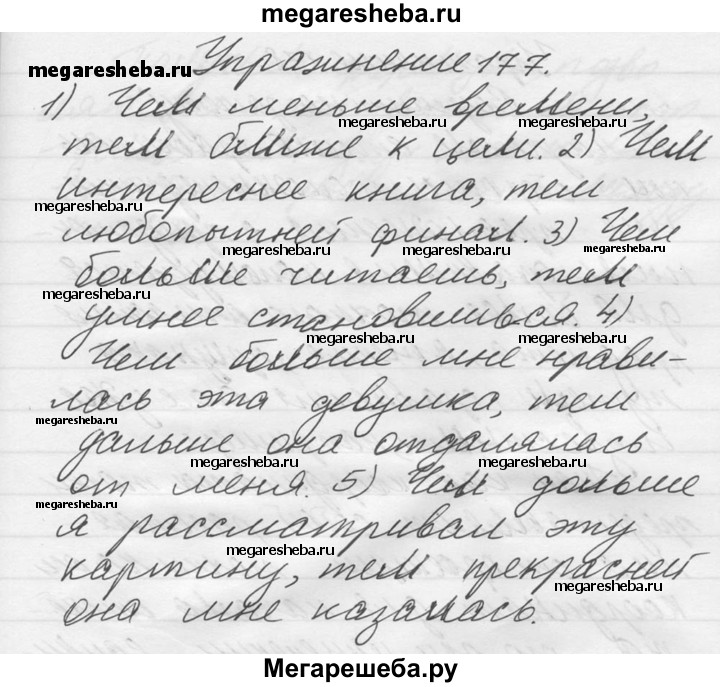 megaresheba.ru
Упражнение 177.
megaresheba.ru
1) Чем меньше времени,
megaresheba.ru
тем ближе к цели. 2) Чем
megaresheba.ru
интереснее книга, тем
megaresheba.ru
любопытней финал. 3) Чем
megaresheba.ru megaresheba.ru megaresheba.ru
больше читаешь, тем
megaresheba.ru
умнее становишься. 4)
megaresheba.ru megaresheba.ru
Чем больше мне нрави-
megaresheba.ru
лась эта девушка, тем
megaresheba.ru
дальше она отдалялась
megaresheba.ru megaresheba.ru
от меня. 5) Чем дольше
megaresheba.ru
я рассматривал эту
megaresheba.ru
картину, тем прекрасней
megaresheba.ru
она мне казалась.
Мегарешеба.ру